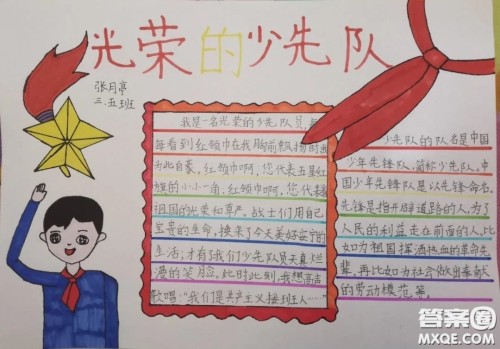 光荣的少先队
张月亭
三.五班
我是一名光荣的少先队员,
每看到红领巾在我胸前飘扬时当
为此自豪。红领巾啊,您代表五星红
旗的小小一角,红领巾啊,您代表
祖国的光荣和尊严。战士们用自己
宝贵的生命,换来了今天美好安宁的
生活,才有了我们少先队员天真烂
漫的笑脸。此时此刻,我想高声
歌唱:"我们是共产主义接班人……"
少先队的队名是中国
少年先锋队,简称少先队。中
国少年先锋队是以先锋命名,
先锋是指开辟道路的人,为了
人民的利益走在前面的人,比
如为祖国挥洒热血的革命先
辈,再比如为社会做出奉献
的劳动模范等。
答案圈
MXQE.COM